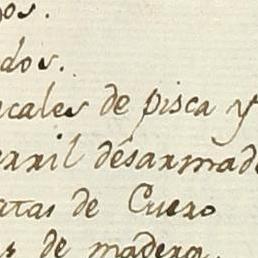 os.
dos.
cales de pisca y
erril desarmado
atas de Cuero
s de madera.